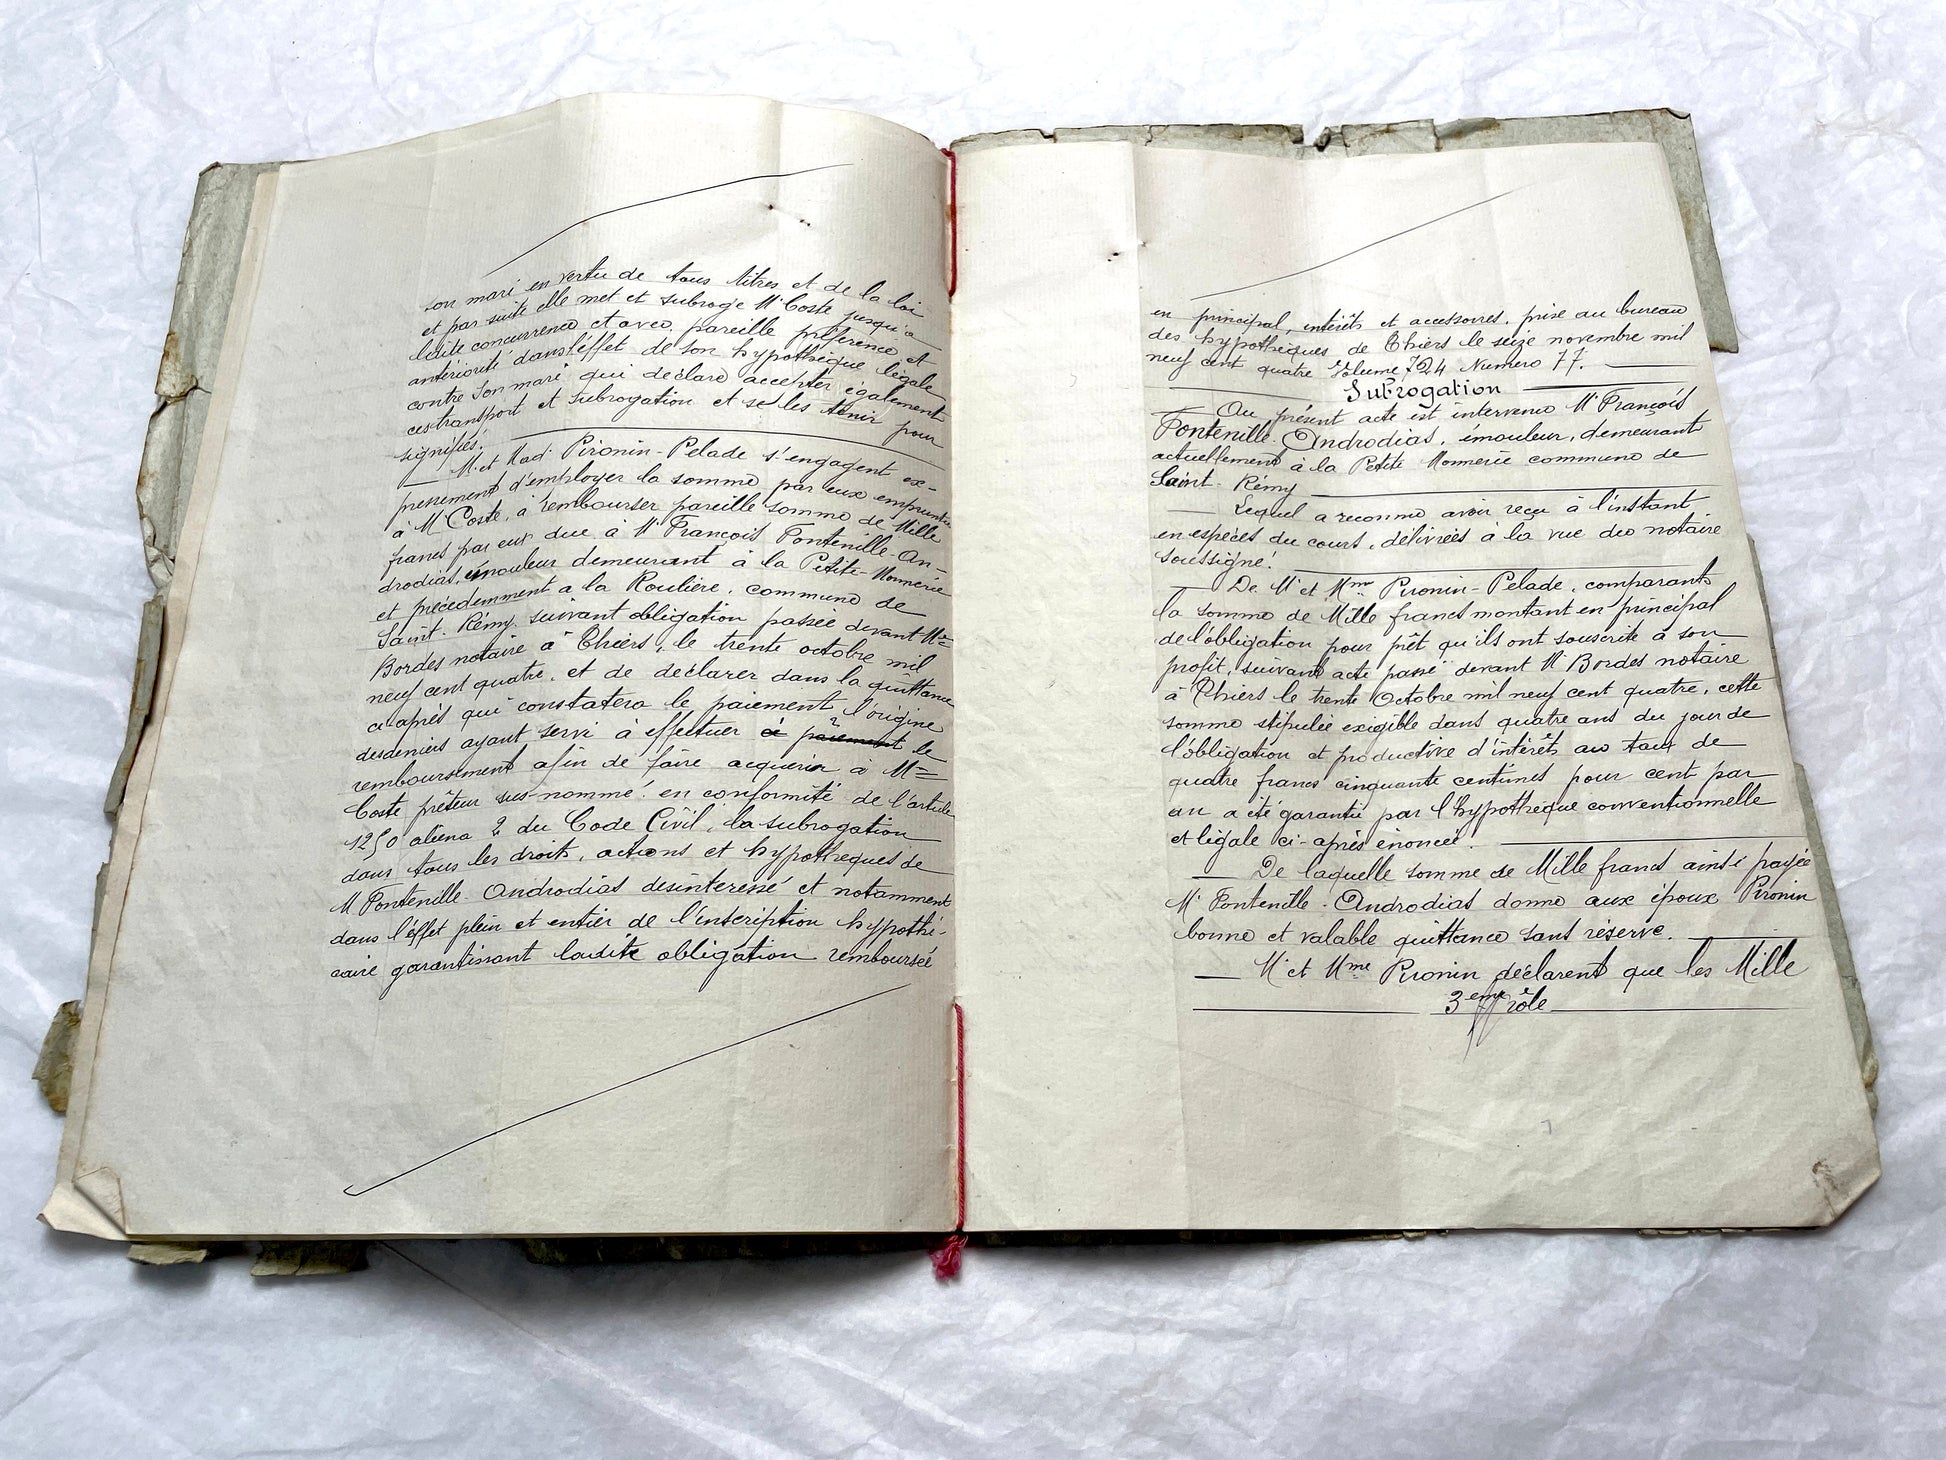 son mari en vertu de tous titres et de la loi
et par suite elle met et subroge Mr Coste jusqu'à
ladite concurrence et avec pareille préférence et
antériorité dans l'effet de son hypothèque légale
contre son mari qui déclare accepter également
ces transport et subrogation et se les tenir pour
signifiés.
M. et Mad. Pironin-Pelade s'engagent ex-
pressement d'employer la somme par eux empruntée
à Mr Coste, à rembourser pareille somme de Mille
francs par eux due à Mr François Fontenille-An-
drodias, émouleur demeurant à la Petite-Monnerie
et précédemment a la Roulière, commune de
Saint-Rémy, suivant obligation passée devant Me
Bordes notaire à Thiers, le trente octobre mil
neuf cent quatre, et de déclarer dans la quittance
ci-après qui constatera le paiement l'origine
des deniers ayant servi à effectuer ce paiement le
remboursement afin de faire acquerir à Mr
Coste prêteur sus-nommé en conformité de l'article
1250 alinea 2 du Code Civil, la subrogation
dans tous les droits, actions et hypothèques de
M Fontenille-Androdias désintéressé et notamment
dans l'effet plein et entier de l'inscription hypothé-
caire garantissant ladite obligation remboursée
en principal, intérêts et accessoires, prise au bureau
des hypothèques de Thiers le seize novembre mil
neuf cent quatre Volume 724 Numéro 77.
Subrogation
Au présent acte est intervenu Mr François
Fontenille-Androdias, émouleur, demeurant
actuellement à la Petite Monnerie commune de
Saint-Rémy
Lequel a reconnu avoir reçu à l'instant
en espèces du cours, délivrées à la vue du notaire
soussigné.
De Mr et Mme Pironin-Pelade, comparants
la somme de Mille francs montant en principal
de l'obligation pour prêt qu'ils ont souscrite à son
profit, suivant acte passé devant Me Bordes notaire
à Thiers le trente Octobre mil neuf cent quatre, cette
somme stipulée exigible dans quatre ans du jour de
l'obligation et productive d'intérêts au taux de
quatre francs cinquante centimes pour cent par
an a été garantie par l'hypothèque conventionnelle
et légale ci-après énoncée.
De laquelle somme de Mille francs ainsi payée
Mr Fontenille-Androdias donne aux époux Pironin
bonne et valable quittance sans réserve.
Mr et Mme Pironin déclarent que les Mille
3eme rôle